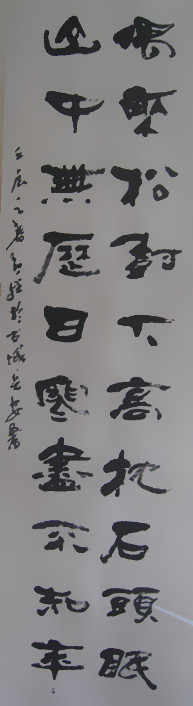 偶來松樹下高枕石頭眠
山中無歷日寒盡不知年
壬辰之春於古城長安書